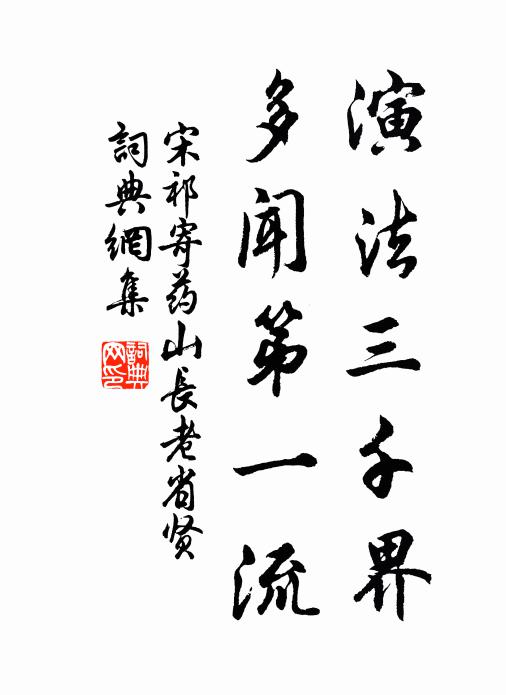 演法三千界
多聞第一流
宋祁寄药山長老省贤
詞典網集
詞典网印